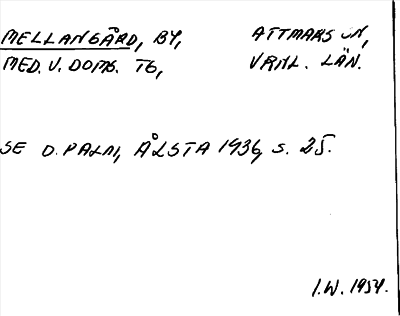 MELLANGÅRD, BY, ATTMARS SN,
MED. V. DOMB. TG, VRNL. LÄN.
SE D. PALM, ÅLSTA 1936, S. 25.
I.W. 1954.